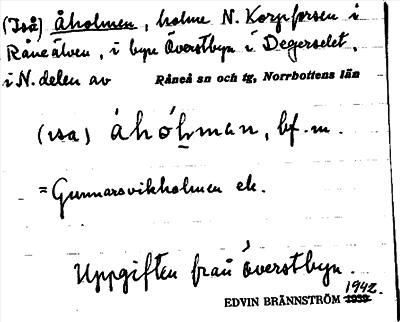 (Iså) Åholmen, holme N. Korpforsen i
Råneälven, i byn Överstbyn i Degerselet,
i N. delen av Råneå sn och tg, Norrbottens län
(ısa) åhólman, bf. m.
= Gunnarsvikholmen ek.
Uppgiften från Överstbyn.
1942.
EDVIN BRÄNNSTRÖM 1939